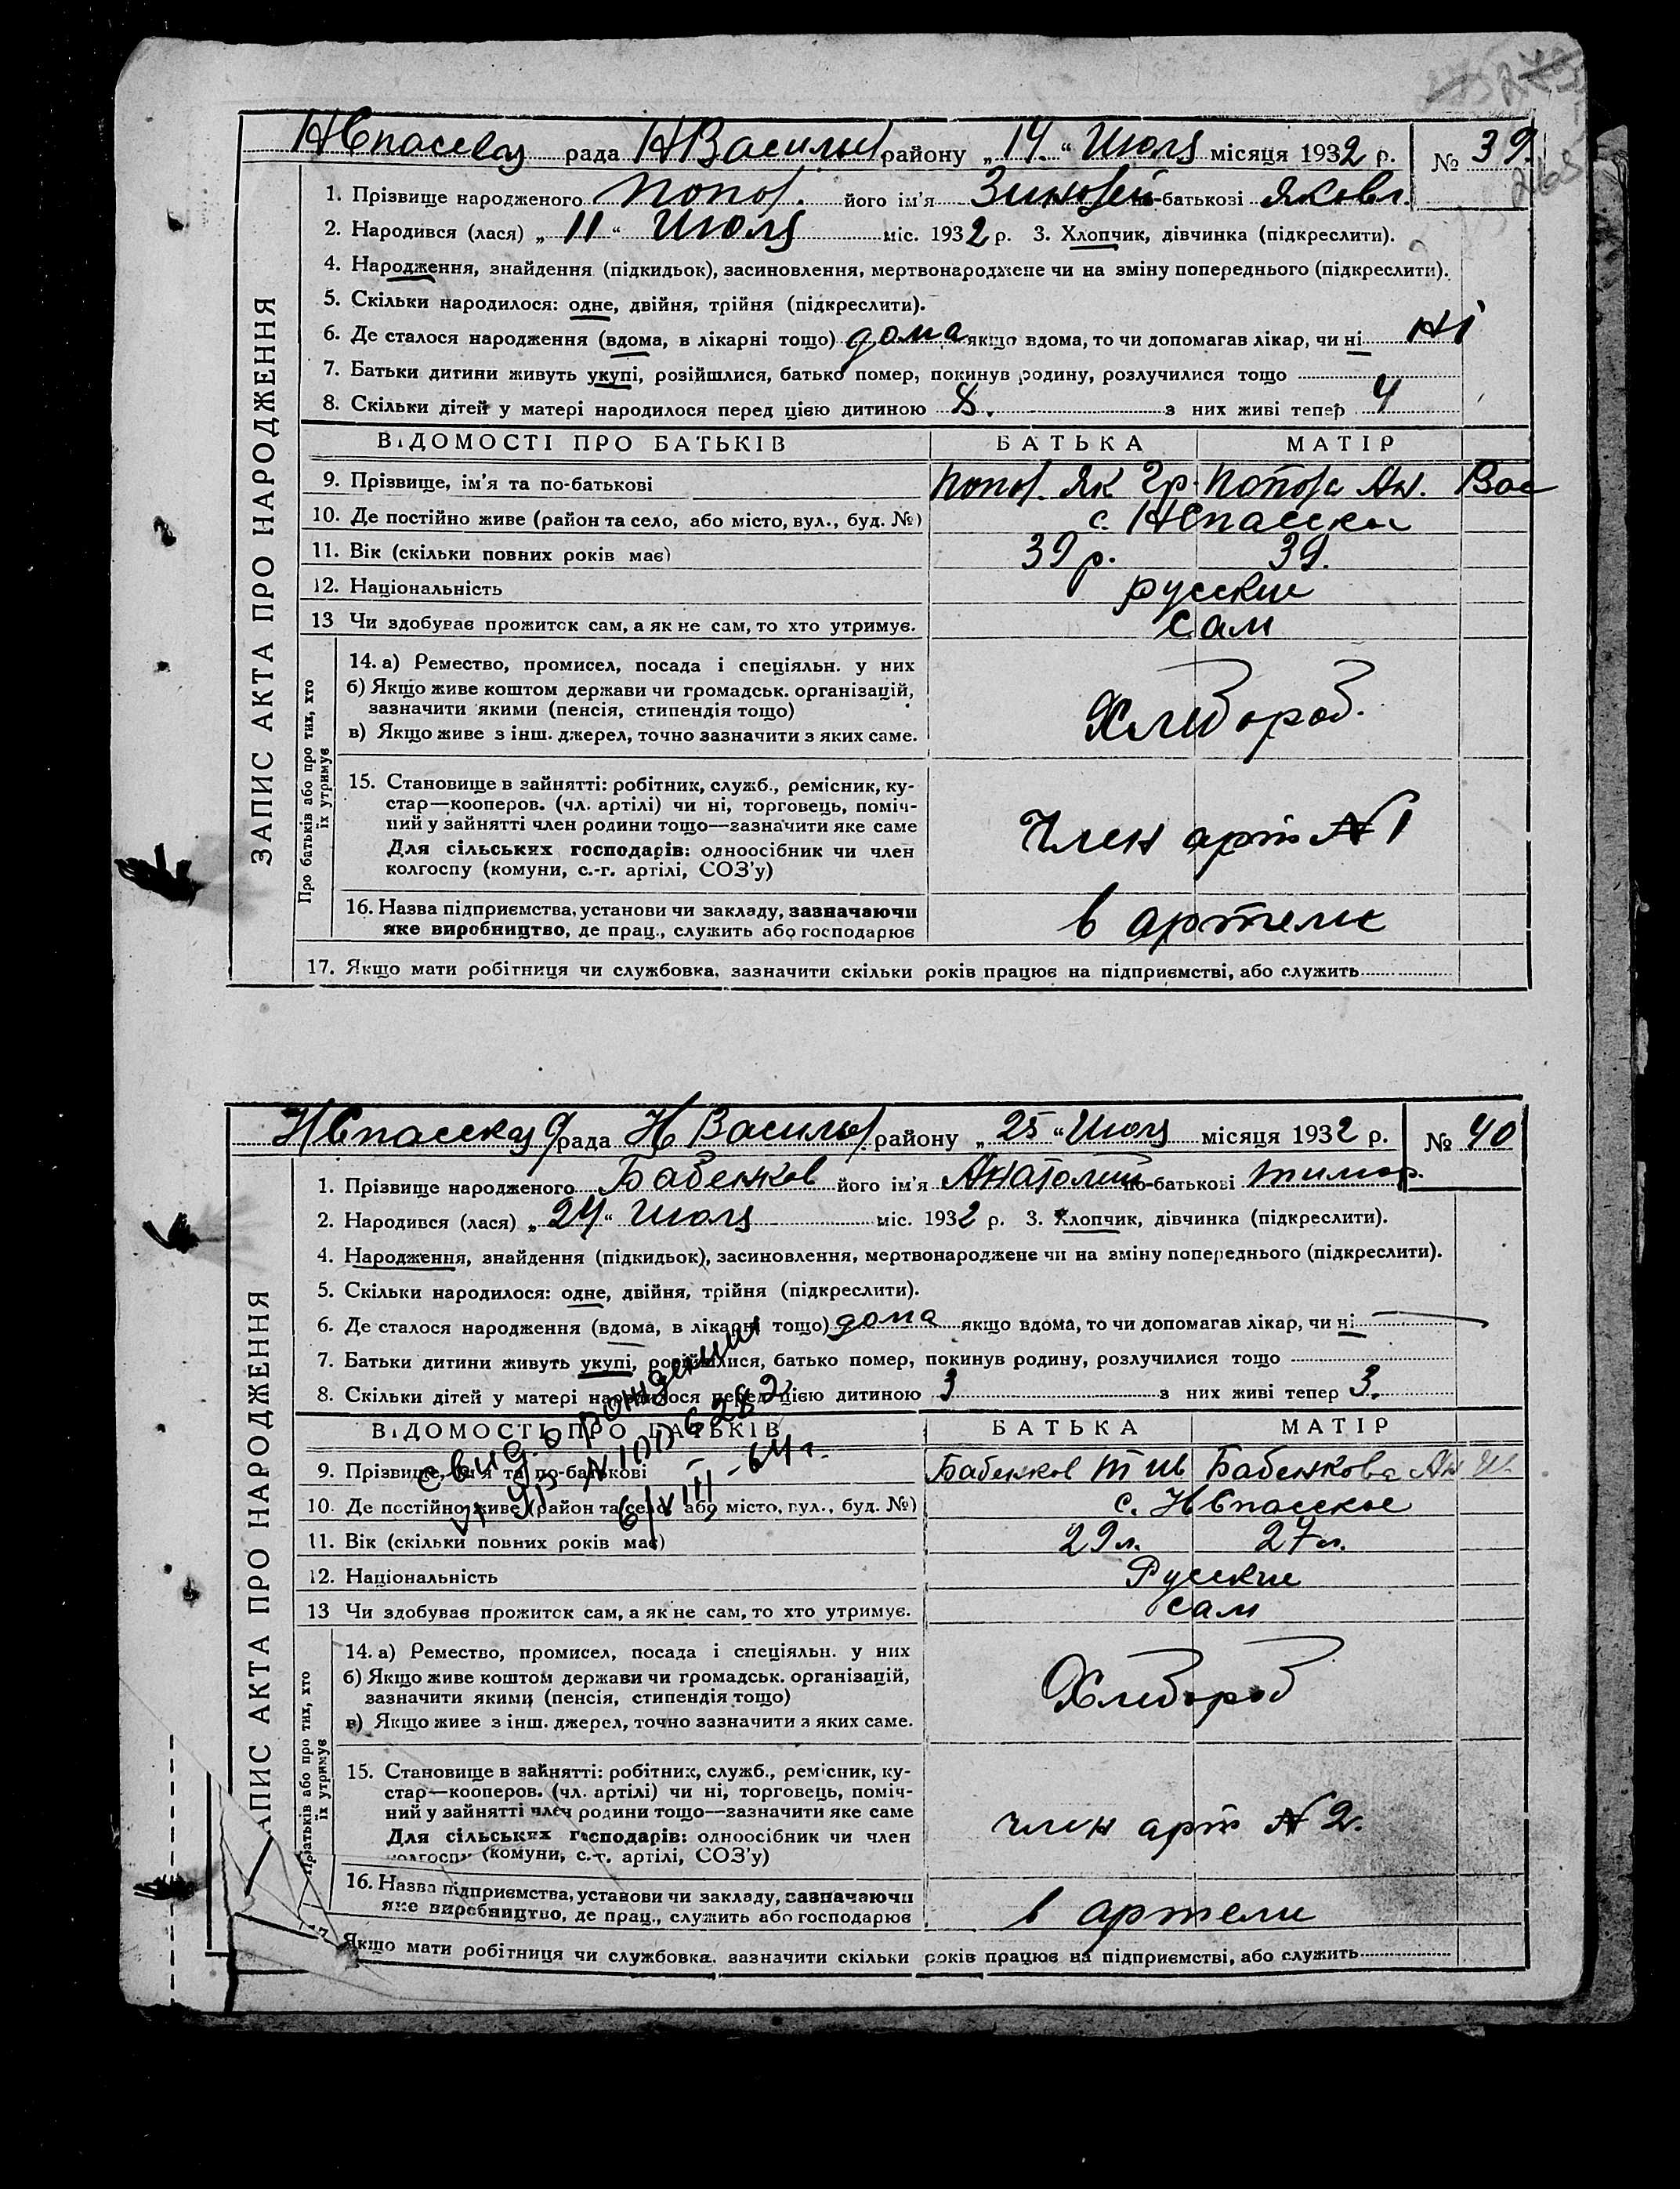 НСпасская рада НВасильев району „14.“ Июля місяця 1932 р. № 39.
1. Прізвище народженого Попов. його ім'я Зиновей по-батькові Яковл.
2. Народився (лася) „11“ Июля міс. 1932 р. 3. Хлопчик, дівчинка (підкреслити).
4. Народження, знайдення (підкидьок), засиновлення, мертвонароджене чи на зміну попереднього (підкреслити).
5. Скільки народилося: одне, двійня, трійня (підкреслити).
6. Де сталося народження (вдома, в лікарні тощо) дома якщо вдома, то чи допомагав лікар, чи ні Ні
7. Батьки дитини живуть укупі, розійшлися, батько помер, покинув родину, розлучилися тощо
8. Скільки дітей у матері народилося перед цією дитиною 8. з них живі тепер 4
ЗАПИС АКТА ПРО НАРОДЖЕННЯ
ВІДОМОСТІ ПРО БАТЬКІВ БАТЬКА МАТІР
9. Прізвище, ім'я та по-батькові Попов. Як Гр. Попова Ан. Вас
10. Де постійно живе (район та село, або місто, вул., буд. №) с. НСпасское
11. Вік (скільки повних років має) 39 р. 39.
12. Національність русские
13 Чи здобуває прожиток сам, а як не сам, то хто утримує. Сам
Про батьків або про тих, хто
їх утримує
14. а) Ремество, промисел, посада і спеціяльн. у них
б) Якщо живе коштом держави чи громадськ. організацій,
зазначити якими (пенсія, стипендія тощо)
в) Якщо живе з інш. джерел, точно зазначити з яких саме.
Хлебороб.
15. Становище в зайнятті: робітник, служб., ремісник, ку-
стар—кооперов. (чл. артілі) чи ні, торговець, поміч-
ний у зайнятті член родини тощо—зазначити яке саме
Для сільських господарів: одноосібник чи член
колгоспу (комуни, с.-г. артілі, СОЗ'у)
Член арт № 1
16. Назва підприємства, установи чи закладу, зазначаючи
яке виробництво, де прац., служить або господарює
в артели
17. Якщо мати робітниця чи службовка, зазначити скільки років працює на підприємстві, або служить
НСпасская рада Н Васильев району „25“ Июля місяця 1932 р. № 40
1. Прізвище народженого Бабенков його ім'я Анатолий по-батькові Тимоф.
2. Народився (лася) „24“ Июля міс. 1932 р. 3. Хлопчик, дівчинка (підкреслити).
4. Народження, знайдення (підкидьок), засиновлення, мертвонароджене чи на зміну попереднього (підкреслити).
5. Скільки народилося: одне, двійня, трійня (підкреслити).
6. Де сталося народження (вдома, в лікарні тощо) дома якщо вдома, то чи допомагав лікар, чи ні
7. Батьки дитини живуть укупі, розійшлися, батько помер, покинув родину, розлучилися тощо
8. Скільки дітей у матері народилося перед цією дитиною 3 з них живі тепер 3.
свид. о рождении
6/VIII - 64 г.
ЗАПИС АКТА ПРО НАРОДЖЕННЯ
ВІДОМОСТІ ПРО БАТЬКІВ БАТЬКА МАТІР
9. Прізвище, ім'я та по-батькові Бабенков Тим Бабенкова Ан
10. Де постійно живе (район та село, або місто, вул., буд. №) с. НСпасское
11. Вік (скільки повних років має) 29 л. 27 л.
12. Національність Русские
13 Чи здобуває прожиток сам, а як не сам, то хто утримує. Сам
Про батьків або про тих, хто
їх утримує
14. а) Ремество, промисел, посада і спеціяльн. у них
б) Якщо живе коштом держави чи громадськ. організацій,
зазначити якими (пенсія, стипендія тощо)
в) Якщо живе з інш. джерел, точно зазначити з яких саме.
Хлебороб
15. Становище в зайнятті: робітник, служб., ремісник, ку-
стар—кооперов. (чл. артілі) чи ні, торговець, поміч-
ний у зайнятті член родини тощо—зазначити яке саме
Для сільських господарів: одноосібник чи член
колгоспу (комуни, с.-г. артілі, СОЗ'у)
член арт № 2.
16. Назва підприємства, установи чи закладу, зазначаючи
яке виробництво, де прац., служить або господарює
в артели
Якщо мати робітниця чи службовка, зазначити скільки років працює на підприємстві, або служить